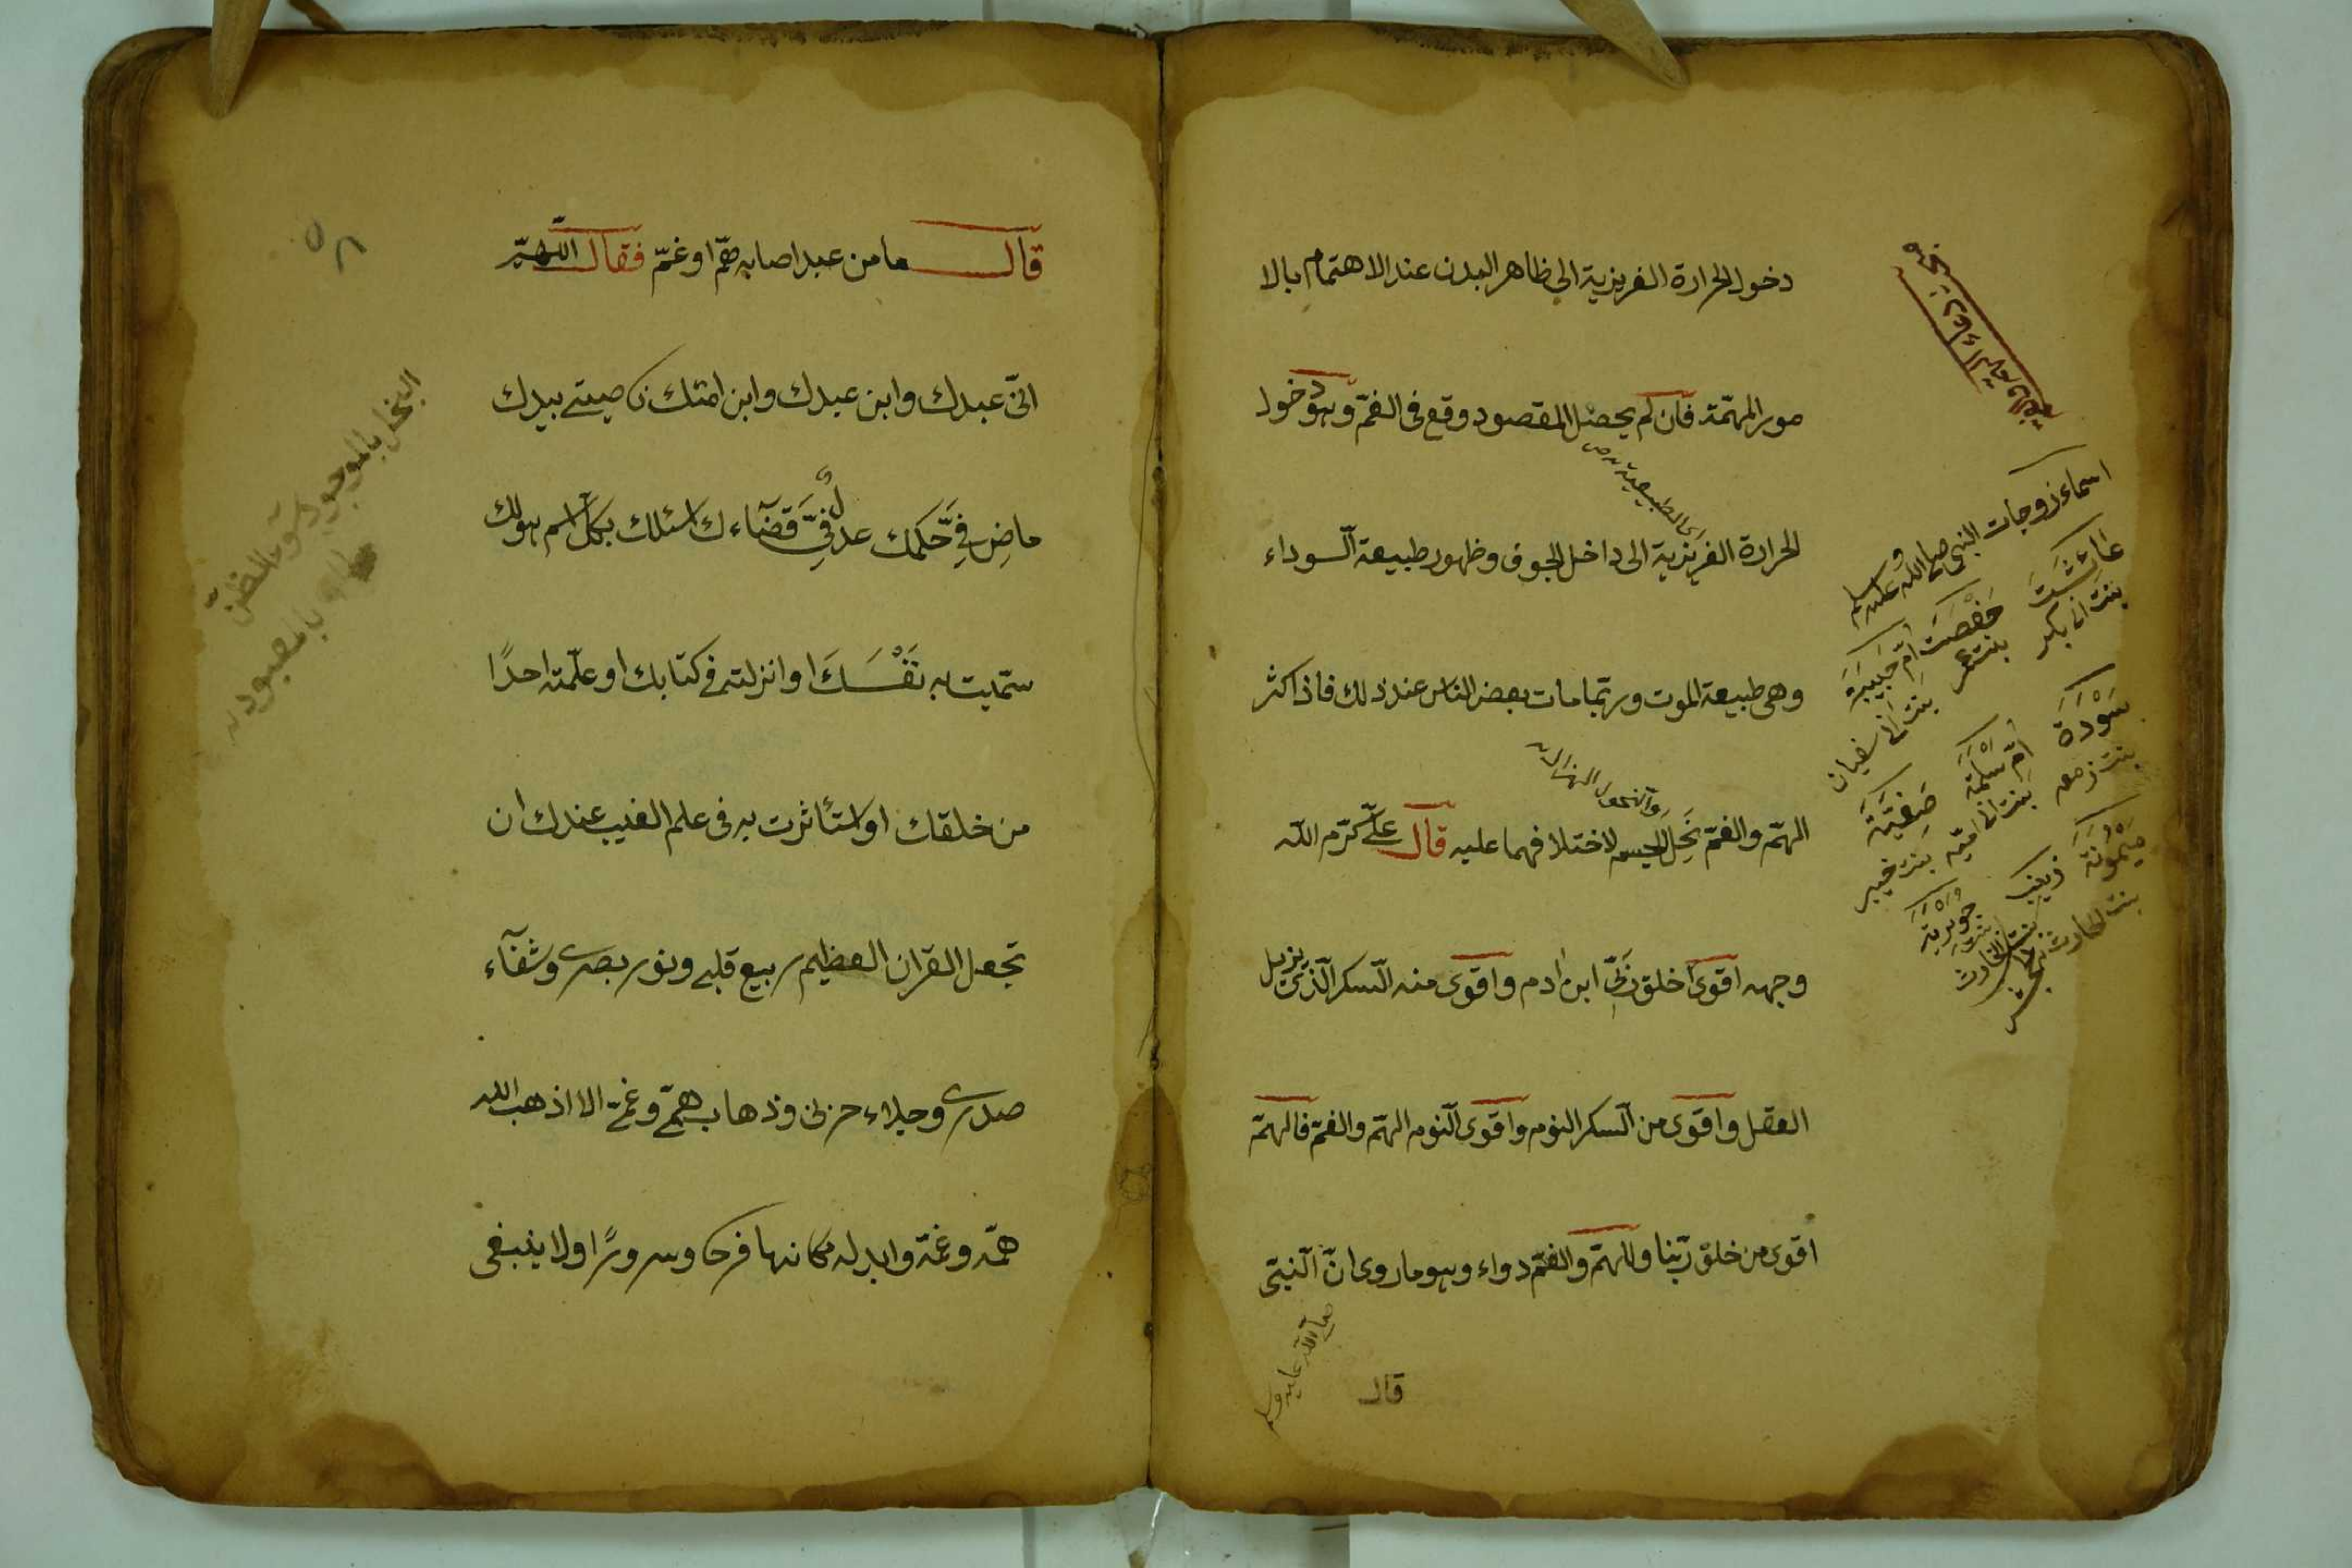 دخول الحرارة الغريزية الى ظاهر البدن عند الاهتمام بالا
مور المهتمة فان لم يحصل المقصود وقع فى الغمّ وهو دخول
الحرارة الغريزية الى داخل الجوف وظهور طبيعة السوداء
اى الطبيعية
وهى طبيعة الموت وربّما مات بعض الناس عند ذلك فاذا كثر
الهمّ والغمّ نَحِلَ الجسم لاختلافهما عليه قال علىّ كرّم الله
والنحول الهزال
وجهه اقوى خلق ربّى ابن ادم واقوى منه السكر الّذى يزيل
العقل واقوى من السكر النوم واقوى النوم الهمّ والغمّ فالهمّ
اقوى من خلق ربّنا وللهمّ والغمّ دواء وهو ما روى انّ النبىّ
صلى الله عليه وسلم
قال
اسماء زوجات النبى صلى الله عليه وسلم
عائشت بنت ابى بكر
حفصت بنت عمر
امّ حبيبة بنت ابى سفيان
سودة بنت زمعه
امّ سلمة بنت ابى اميه
صفيّة بنت خيبر
ميمونة بنت الحارث
زينب بنت جحش
جويرية بنت الحارث
قال ما من عبد اصابه همّ او غمّ فقال اللهمّ
انّى عبدك وابن عبدك وابن امتك ناصيتى بيدك
ماضٍ فىّ حكمك عدل فىّ قضآءك اسئلك بكلّ اسم هو لك
سمّيت به نَفْسَكَ او انزلته فى كتابك او علّمته احدًا
من خلقك او استأثرت به فى علم الغيب عندك ان
تجعل القران العظيم ربيع قلبى ونور بصرى وشفآء
صدرى وجلاء حزنى وذهاب همّى وغمّى الا اذهب الله
همّه وغمّه وابدله مكانها فرحا وسرورًا ولا ينبغى
٥٨
البخل بالموجود سوء الظنّ
بالمعبود